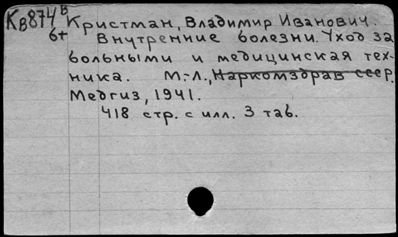 Кв874в Кристман, Владимир Иванович.
6+ Внутренние болезни. Уход за
больными и медицинская тех-
ника. М.-Л., Наркомздрав ссср.
Медгиз, 1941.
418 стр. с илл. 3 таб.